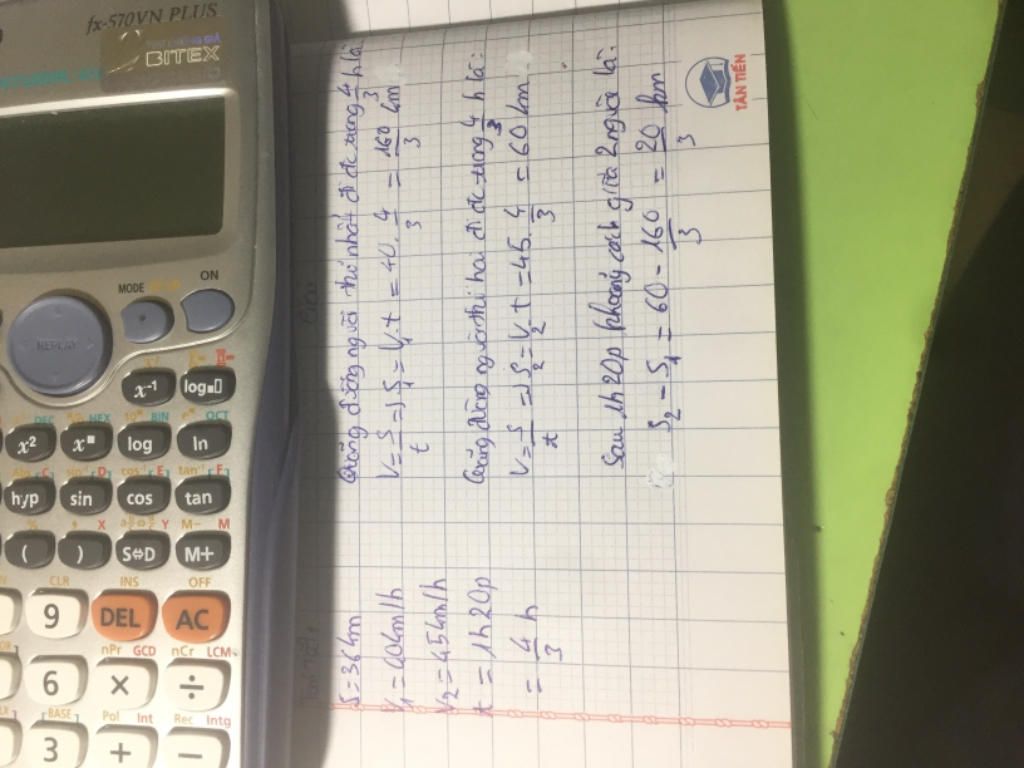 fx-570VN PLUS
BITEX
MODE
ON
REPLAY
x⁻¹
log▪▯
DEC
HEX
BIN
OCT
x²
x▪
log
ln
C
sin⁻¹ D
cos⁻¹ E
tan⁻¹ F
hyp
sin
cos
tan
%
X
Y
M− M
(
)
S⇔D
M+
CLR
INS
OFF
9
DEL
AC
nPr GCD
nCr LCM
6
×
÷
[BASE]
Pol Int
Rec Intg
3
+
−
Tóm tắt:
Giải
S = 36km
V₁ = 40km/h
V₂ = 45km/h
t = 1h20p
= 4/3 h
Quãng đường người thứ nhất đi đc trong 4/3 h là
V = S/t => S₁ = V₁.t = 40.4/3 = 160/3 km
Quãng đường người thứ hai đi đc trong 4/3 h là:
V = S/t => S₂ = V₂.t = 45.4/3 = 60 km
Sau 1h20p khoảng cách giữa 2 người là:
S₂ - S₁ = 60 - 160/3 = 20/3 km
TÂN TIẾN